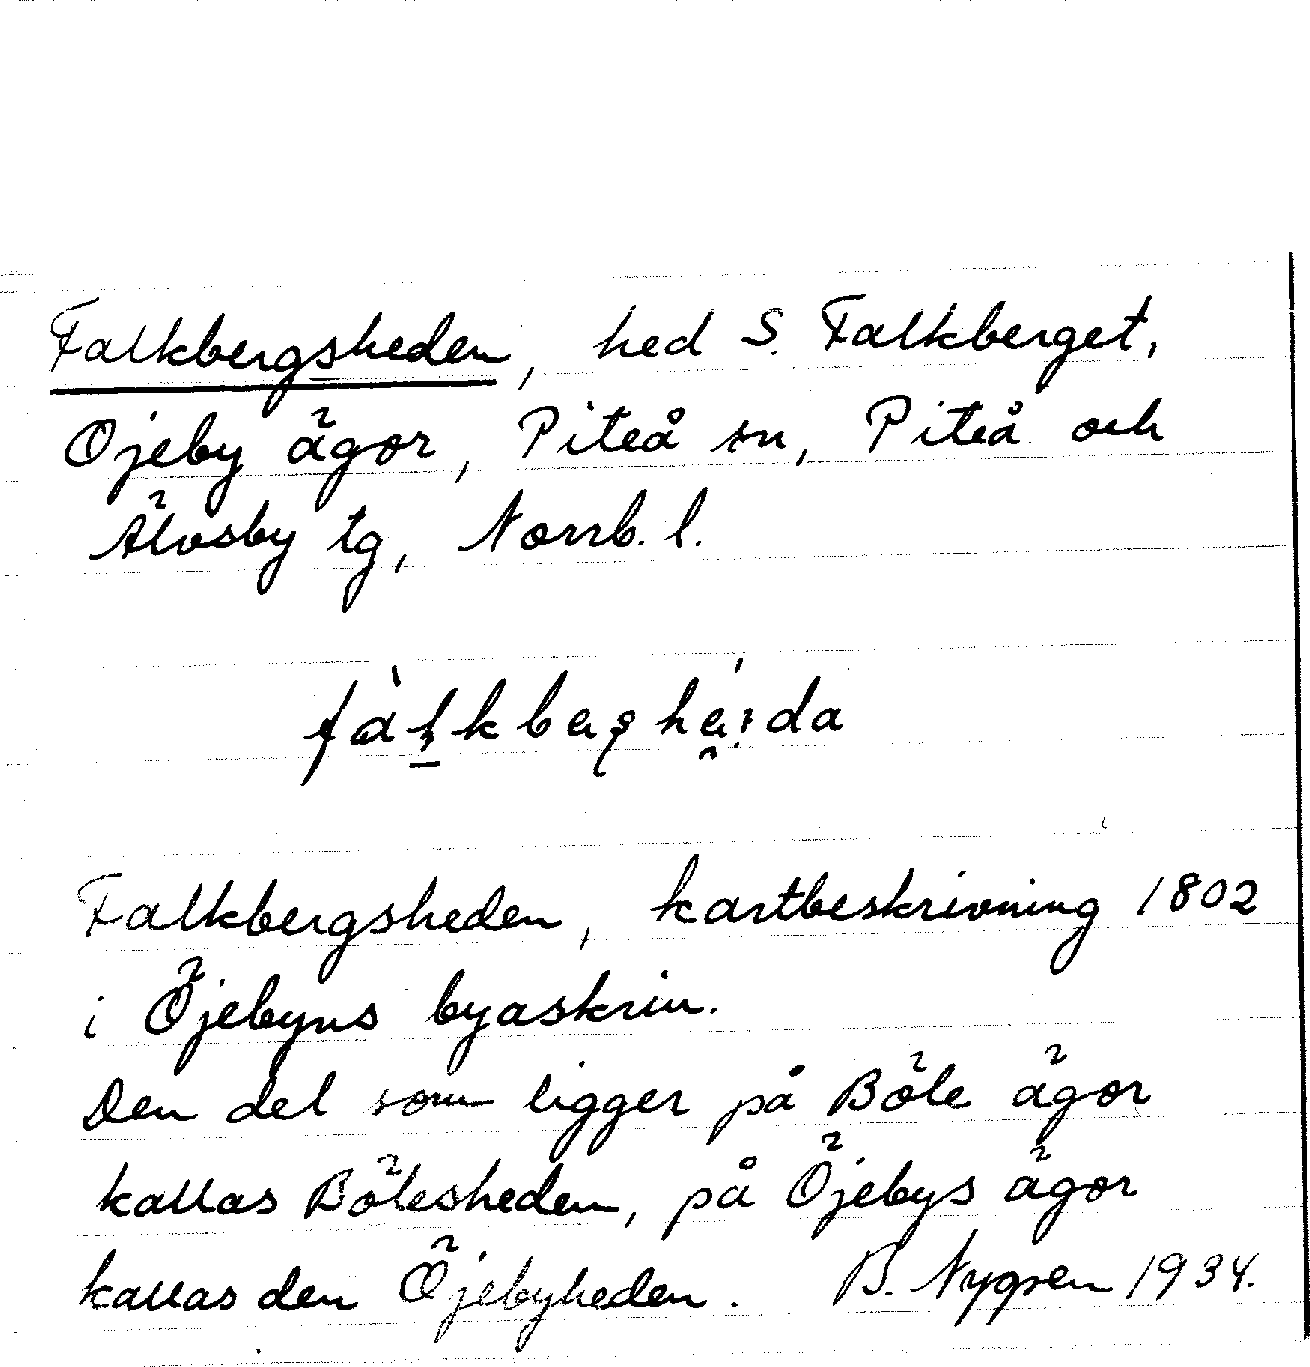 Falkbergsheden, hed S. Falkberget,
Ojeby ägor, Piteå sn, Piteå och
Älvsby tg, Norrb. l.
Falkbergsheden, kartbeskrivning 1802
i Öjebyns byaskrin.
Den del som ligger på Böle ägor
kallas Bölesheden, på Öjebys ägor
kallas den Öjebyheden. B. Nygren 1934.